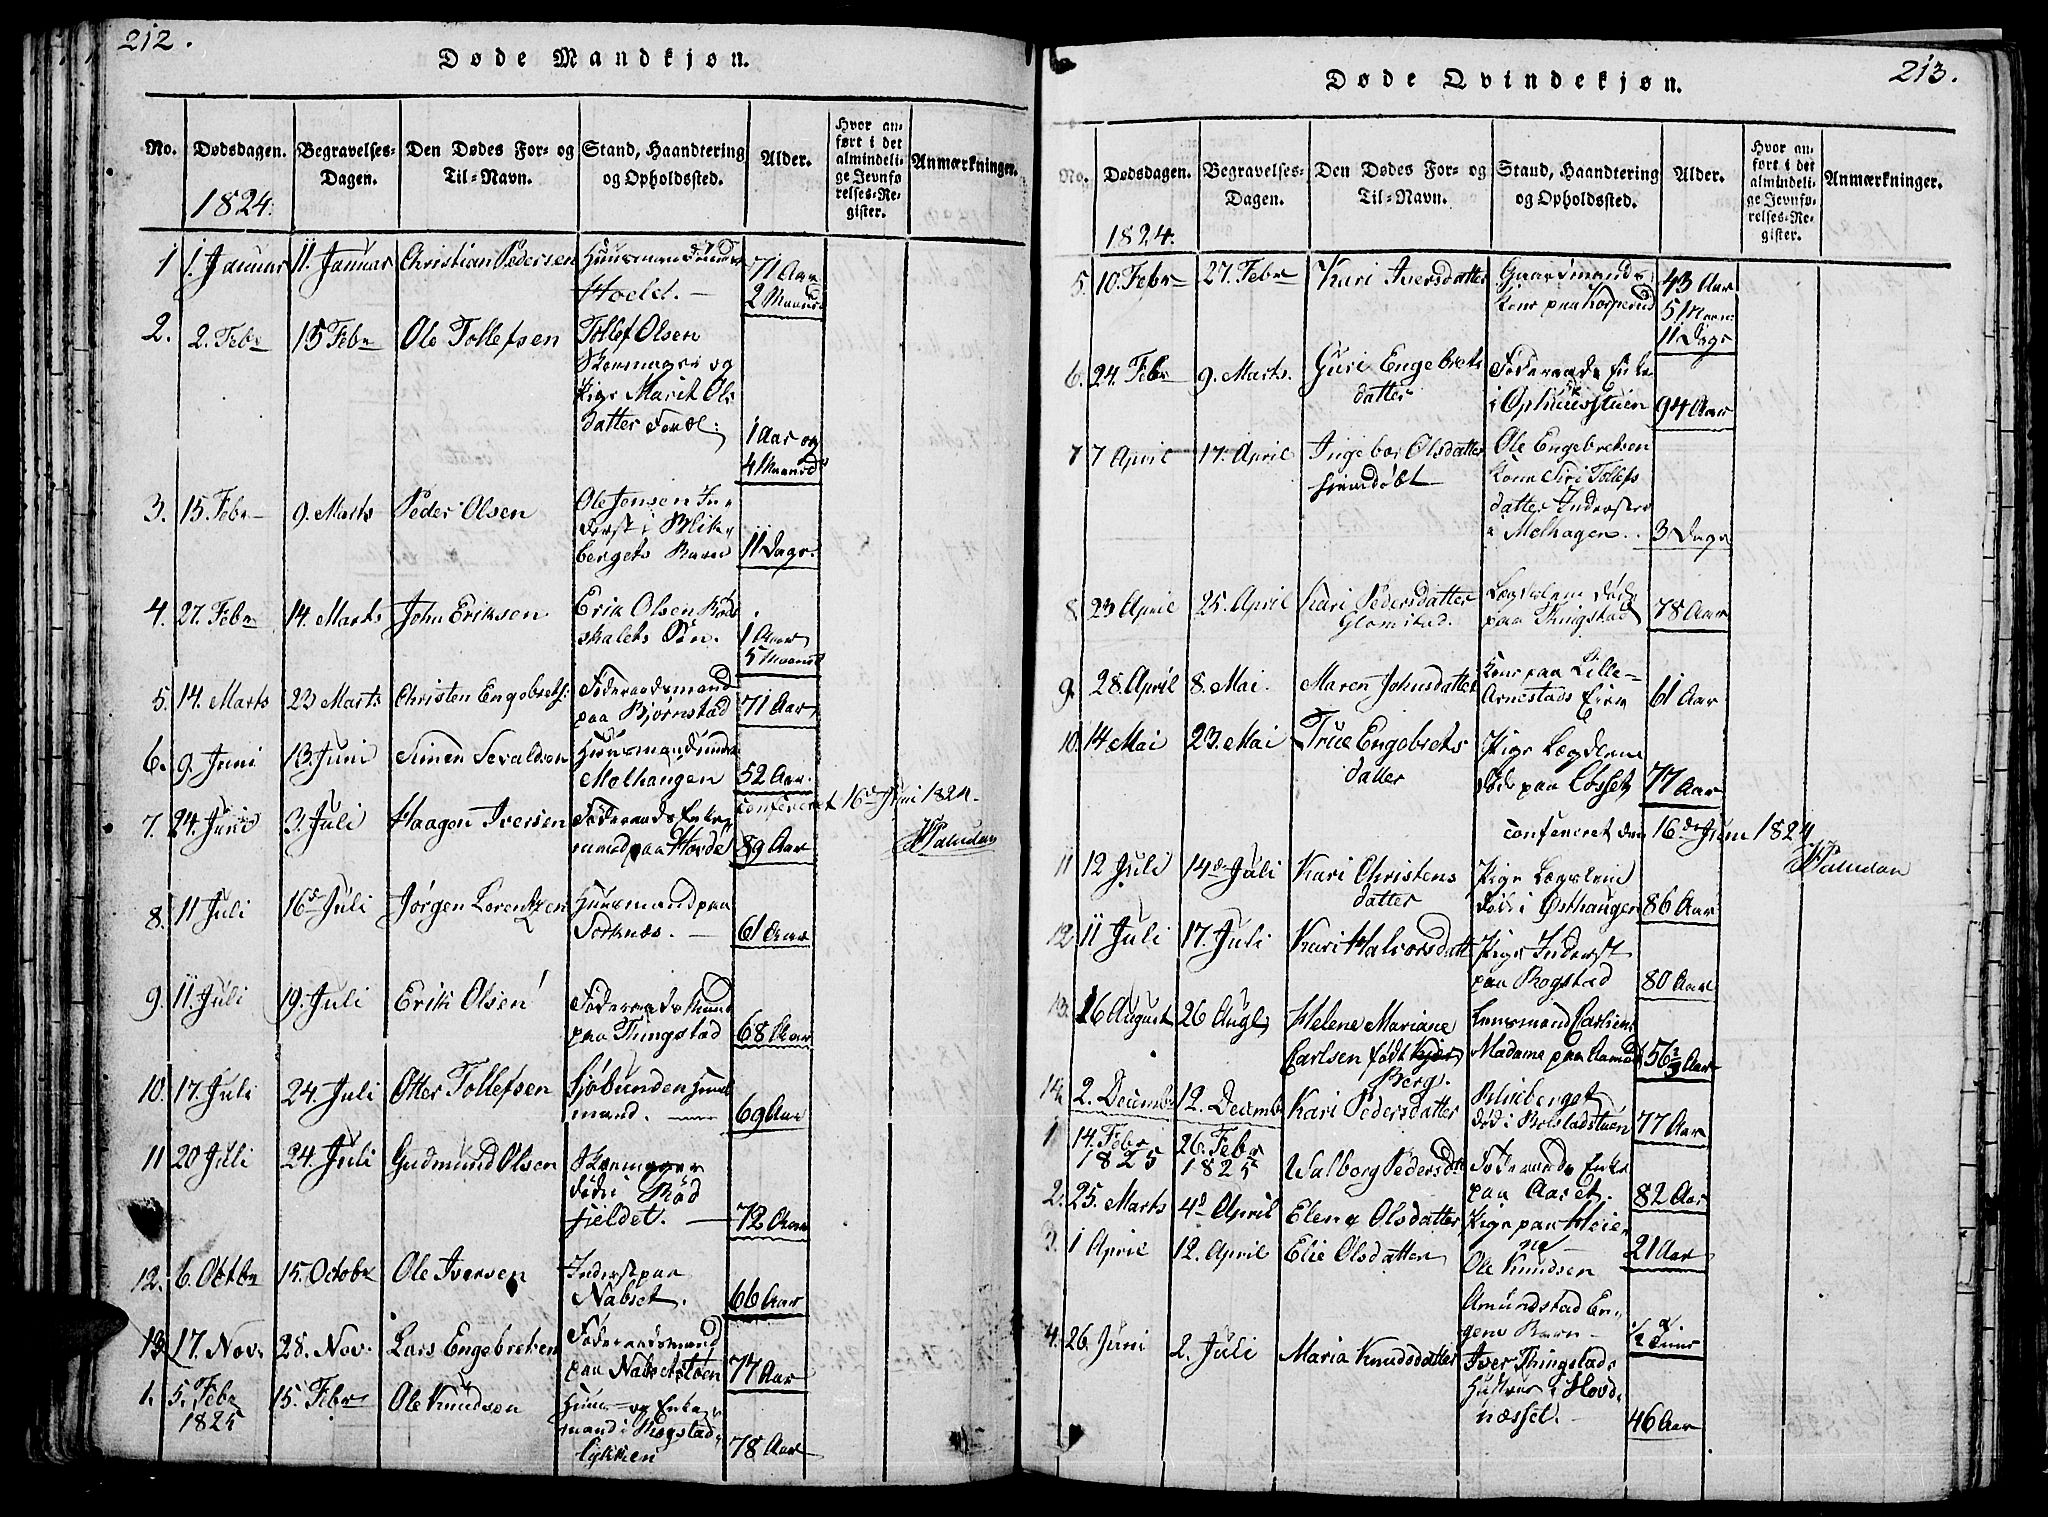 212.
Døde Mandkjøn.
No. Dødsdagen. Begravelses-Dagen. Den Dødes For- og Til-Navn. Stand, Haandtering og Opholdssted. Alder. Hvor anført i det almindelige Jevnførelses-Register. Anmærkninger.
1824.
1 1. Januar 11. Januar Christian Pedersen Huusmand under
Hoeld. — 71 Aar
2 Maaned
2. 2. Febr 15 Febr Ole Tollefsen Tollef Olsen
Skoemager og
Pige Marit Ols
datter 1 Aar og
4 Maaned
3. 15. Febr 9. Marts Peder Olsen Ole Jensen In-
derst i Blik-
bergets Barn 11 Dage.
4. 27. Febr 14. Marts John Eriksen Erik Olsen
skalets Søn. 1 Aar
5 Maaned
5. 14. Marts 23 Marts Christen Engebrets: Føderaadsmand
paa Bjørnstad 71 Aar
6. 9. Juni 13. Juni Simen Sevaldsen Huusmand under
Molhaugen 52 Aar.
confereret 16d Juni 1824.
7. 24. Juni 3. Juli Haagen Iversen Føderaads Enke-
mand paa Hovde 89 Aar
Paludan
8. 11 Juli 16d Juli Jørgen Lorentzen Huusmand paa
Sorknæs. — 61 Aar
9. 11. Juli 19. Juli Erik Olsen Føderaads Mand
paa Thingstad 68 Aar
10. 17. Juli 24. Juli Otter Tollefsen Sjøbunden Huus
mand. — 69 Aar
11 20 Juli 24. Juli Gudmund Olsen Skoemager
død i Rød
fjeldet. — 72 Aar
12. 6. Octbr 15. Octobr Ole Iversen Inderst paa
Nabset. 66 Aar
13. 17. Nov. 28. Nov. Lars Engebretsen Føderaadsmand
paa Nabsetstøen 77 Aar
1. 5. Febr
1825 15. Febr Ole Knudsen Huus- og Enke-
mand i Rogstad-
lykken 78 Aar
213.
Døde Qvindekjøn.
No. Dødsdagen. Begravelses-Dagen. Den Dødes For- og Til-Navn. Stand, Haandtering og Opholdssted. Alder. Hvor anført i det almindelige Jevnførelses-Register. Anmærkninger.
1824.
5. 10. Febr 27. Febr Kari Iversdatter Gaardmands
Kone paa Korperud 43 Aar
5 Maan:
11 Dage
6. 24. Febr 9. Marts. Guri Engebrets
datter Føderaads Enke
i Ophuusstuen 94 Aar
7 7 April 17. April Ingebor Olsdatter
hjemdøbt Ole Engebretsen
Kone Siri Tollefs
datter Inderster
i Melhagen. 3 Dage
8 23 April 25. April Kari Pedersdatter
Glomstad. Lægslem død
paa Thingstad 78 Aar
9. 28. April 8. Mai. Maren Johnsdatter Kone paa Lille-
Arnestads Eje 61 Aar
10. 14 Mai 23. Mai True Engebrets
datter Pige Lægdslem
død paa Losset 77 Aar
conferert den 16de Juni 1824
Paludan
11 12 Juli 14de Juli Kari Christens
datter Pige Lægslem
død i Østhaugen 86 Aar
12. 11 Juli 17. Juli Kari Halvorsdatt Pige Inderst
paa Rogstad 80 Aar
13. 16 August 26 Augt, Helene Mariane
Carlsen født Kjær,
Berg. Lensmand Carlsens
Madame paa 56 Aar
14. 2. Decemb: 12. Decemb: Kari Pedersdatter Blikberget
død i Bolstadstuen 77 Aar
1 14. Febr
1825 26. Febr
1825 Walborg Pedersd: Føderaads Enke
paa Aaset. 82 Aar
2. 25. Marts 4d April Elena Olsdatter, Pige paa Heie-
ne — 21 Aar
3. 1 April 12. April Elie Olsdatter Ole Knudsen
Amundstad En-
gens Barn — ½ Time
4. 26. Juni 2. Juli Maria Knudsdatter Iver Thingstads
Hustrue i Hovd-
næsset. — 46 Aar